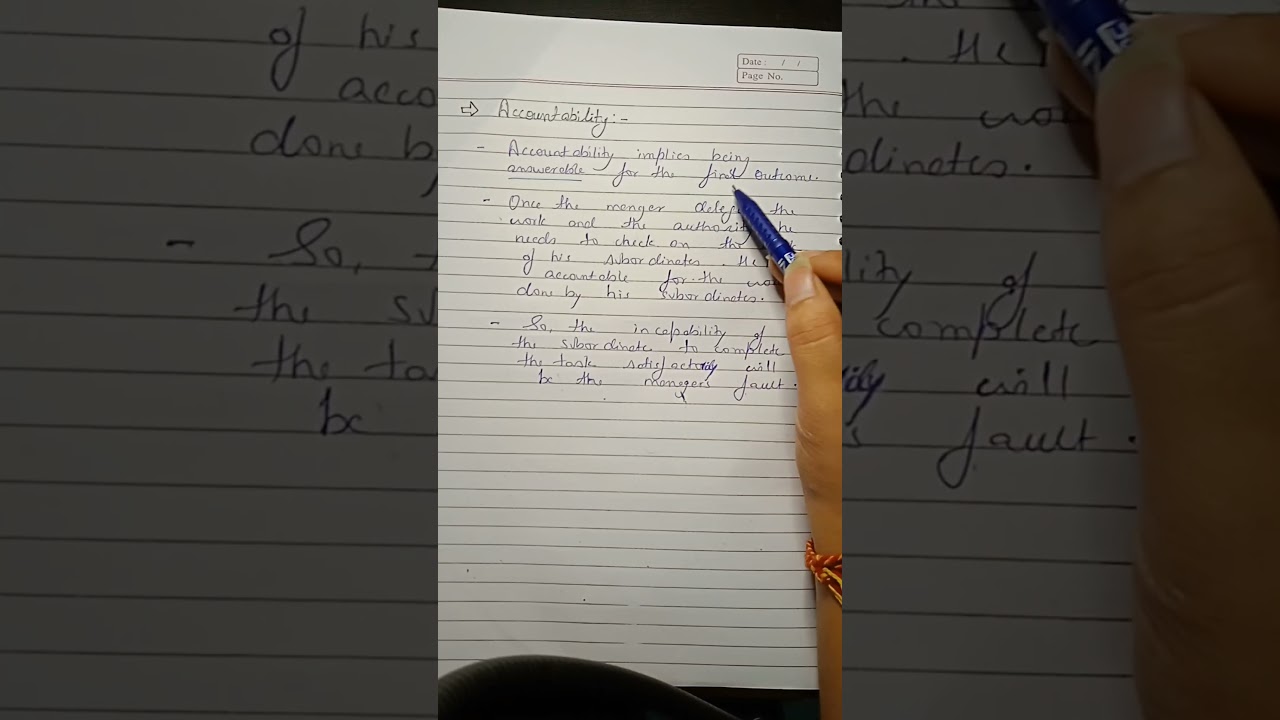 Date : / /
Page No.
⇨ Accountability:-
- Accountability implies being
answerable for the final outcome.
- Once the manger the
work and the authority he
needs to check on the
of his subordinates. He
accountable for the
done by his subordinates.
- So, the incapability of
the subordinate to complete
the task satisfactorily will
be the managers fault.